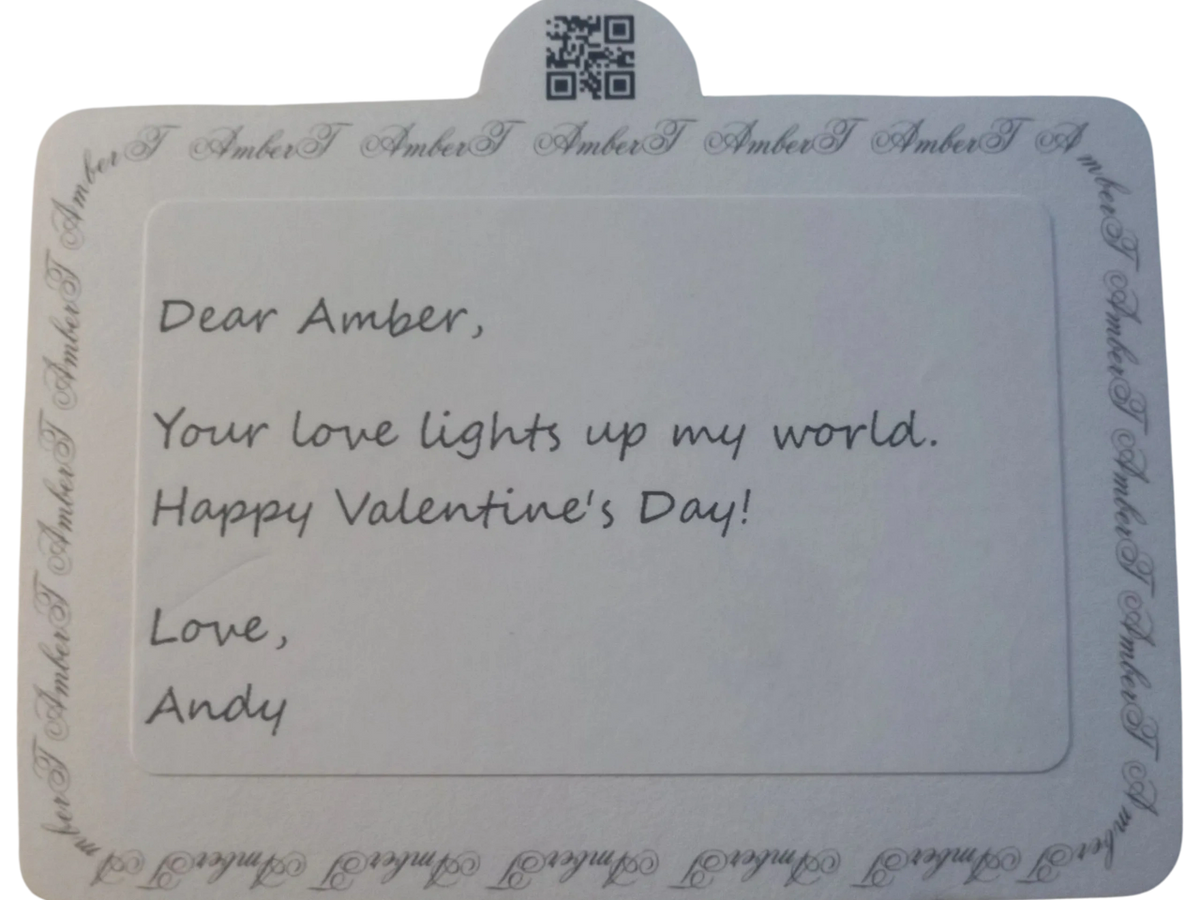 AmberT AmberT AmberT AmberT AmberT AmberT AmberT
AmberT AmberT AmberT AmberT
Dear Amber,
Your love lights up my world.
Happy Valentine's Day!
Love,
Andy
AmberT AmberT AmberT AmberT
AmberT AmberT AmberT AmberT AmberT AmberT